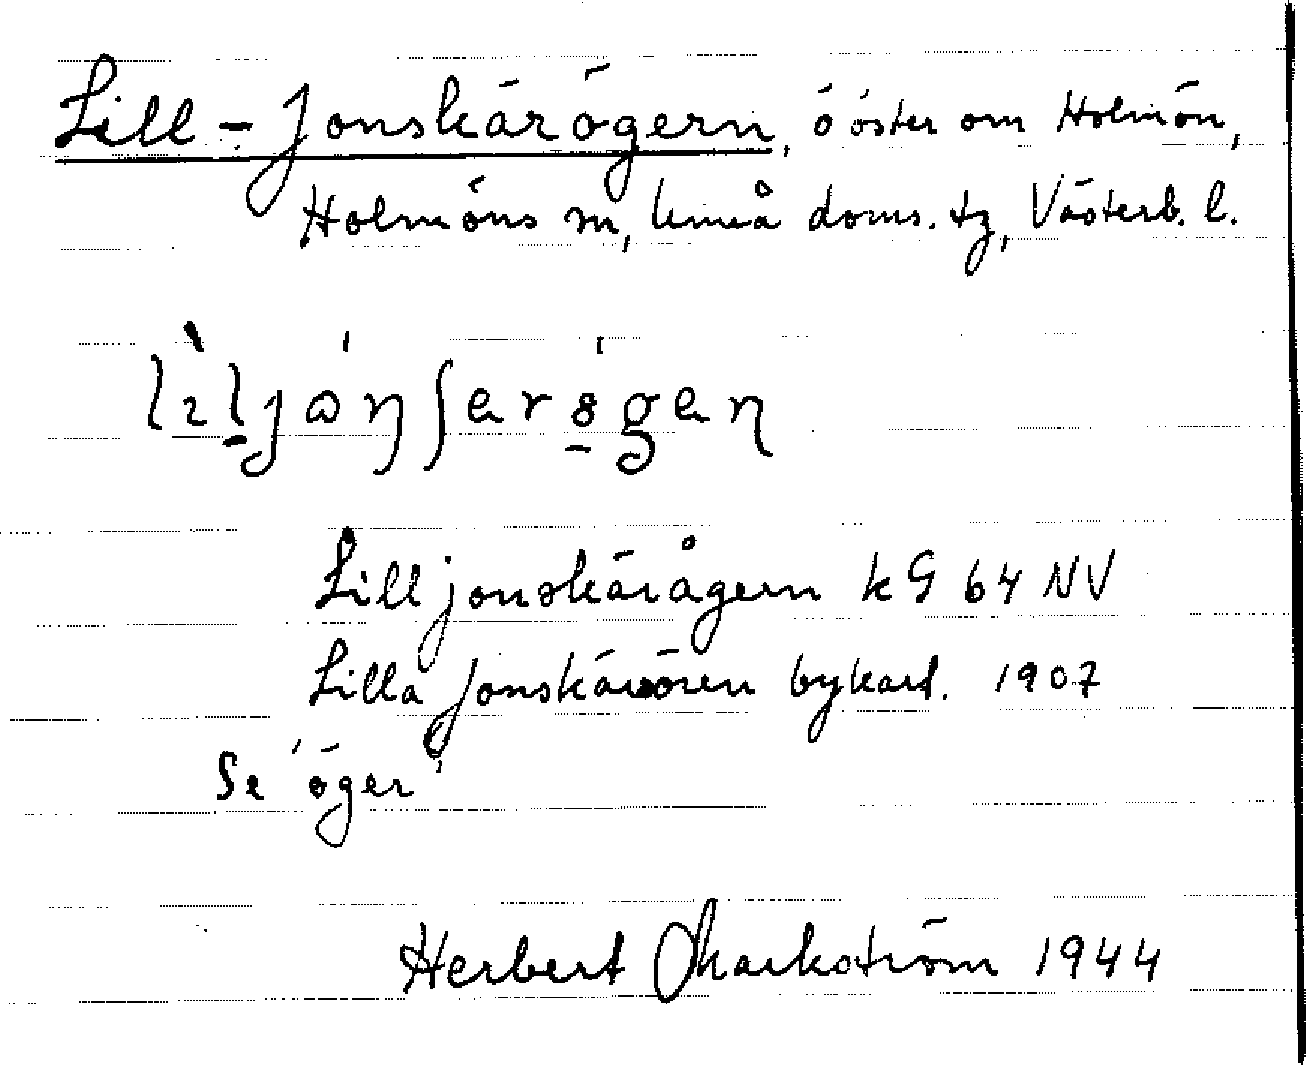 Lill-Jonskärögern, ö öster om Holmön,
Holmöns sn, Umeå doms. tg, Västerb. l.
Lilljonskärågern kG 64 NV
Lilla Jonskärören bykart. 1907
Se 'öger'
Herbert Markström 1944